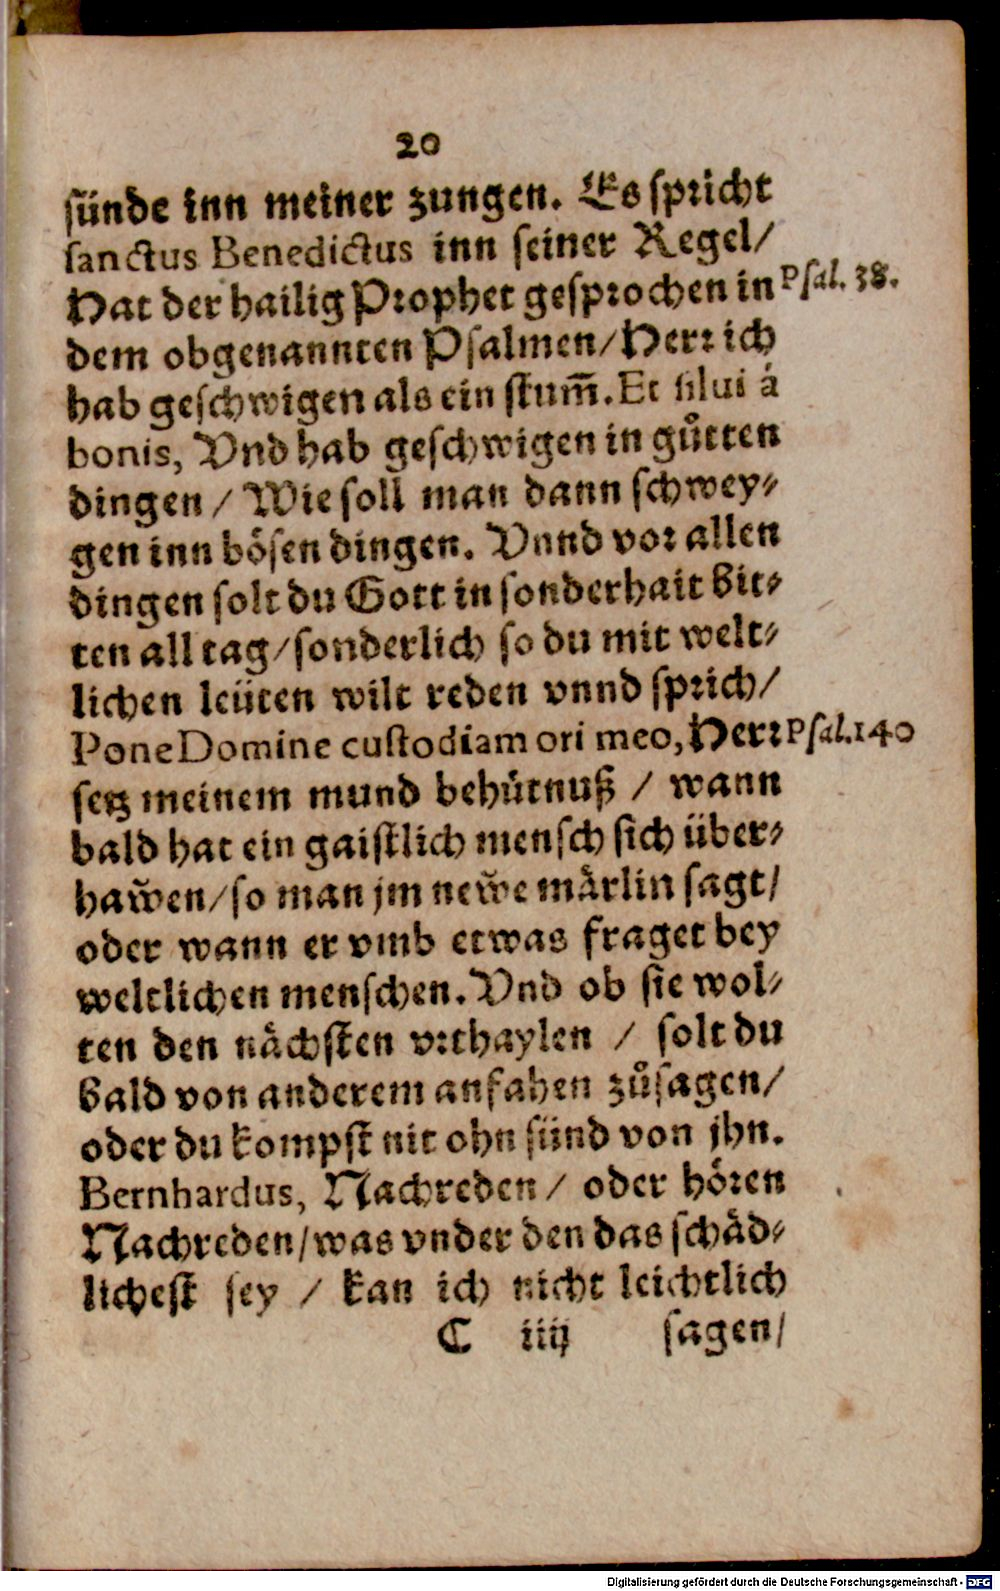 20
sünde inn meiner zungen. Es spricht
sanctus Benedictus inn seiner Regel/
Hat der hailig Prophet gesprochen in Psal. 38.
dem obgenannten Psalmen/Herr ich
hab geschwigen als ein stum̃. Et silui à
bonis, Vnd hab geschwigen in gůtten
dingen / Wie soll man dann schwey⸗
gen inn bösen dingen. Vnnd vor allen
dingen solt du Gott in sonderhait bit⸗
ten all tag/sonderlich so du mit welt⸗
lichen leüten wilt reden vnnd sprich/
Pone Domine custodiam ori meo, Herr Psal.140
setz meinem mund behütnuß / wann
bald hat ein gaistlich mensch sich über⸗
haw̆en/so man jm new̆e märlin sagt/
oder wann er vmb etwas fraget bey
weltlichen menschen. Vnd ob sie wol⸗
ten den nächsten vrthaylen / solt du
bald von anderem anfahen zůsagen/
oder du kompst nit ohn sünd von jhn.
Bernhardus, Nachreden / oder hören
Nachreden/was vnder den das schäd⸗
lichest sey / kan ich nicht leichtlich
C iiij sagen/
Digitalisierung gefördert durch die Deutsche Forschungsgemeinschaft - DFG